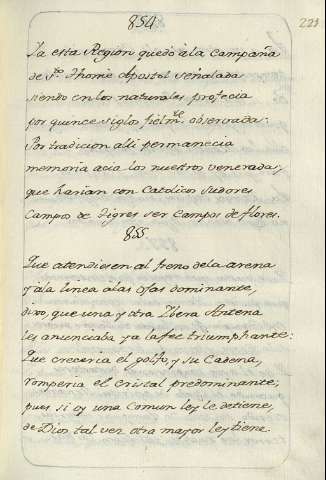 854
223
Ya esta Region quedó à la Campaña
de Sto. Thome Apostol señalada
siendo en los naturales profecia
por quince siglos fielmte. observada:
Por tradicion alli permanecia
memoria acia los nuestros venerada,
que harian con Catolicos sudores
Campos de tigres ser Campos de flores.
855
Que atendiesen al freno de la arena
y à la linea à las osas dominante,
dixo, que una y otra Ybera Antena
les anunciaba ya la fee triumphante:
Que creceria el golfo, y su Cadena,
romperia el cristal predominante,
pues si oy una comun ley le detiene,
de Dios tal vez otra mayor ley tiene